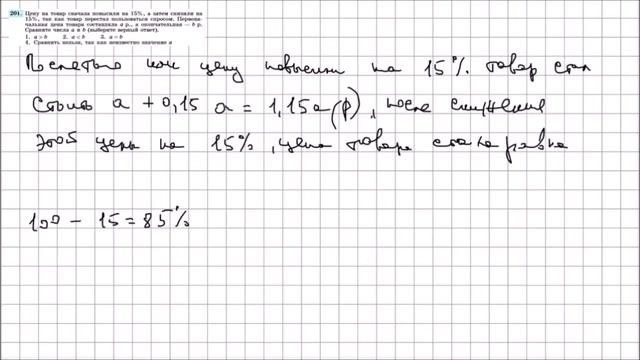 201. Цену на товар сначала повысили на 15%, а затем снизили на
15%, так как товар перестал пользоваться спросом. Первона-
чальная цена товара составляла a р., а окончательная — b р.
Сравните числа a и b (выберите верный ответ).
1. a > b 2. a < b 3. a = b
4. Сравнить нельзя, так как неизвестно значение a
После того как цену повысили на 15% товар стал
стоить a + 0,15 a = 1,15a (р), после снижения
этой цены на 15%, цена товара стала равна
100 - 15 = 85%